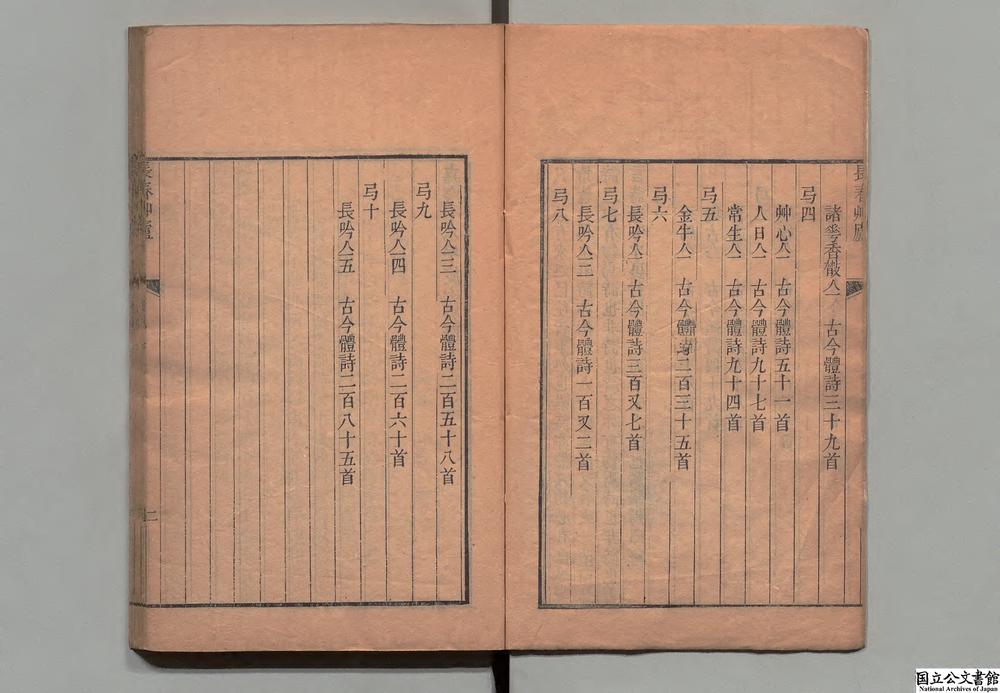 長春艸廬
諸夢香㪚亼一 古今體詩三十九首
弓四
艸心亼一 古今體詩五十一首
人日亼一 古今體詩九十七首
常生亼一 古今體詩九十四首
弓五
金牛亼一 古今體詩二百三十五首
弓六
長吟亼一 古今體詩三百又七首
弓七
長吟亼二 古今體詩一百又二首
弓八
長吟亼三 古今體詩二百五十八首
弓九
長吟亼四 古今體詩二百六十首
弓十
長吟亼五 古今體詩二百八十五首
長春艸廬
二
国立公文書館
National Archives of Japan